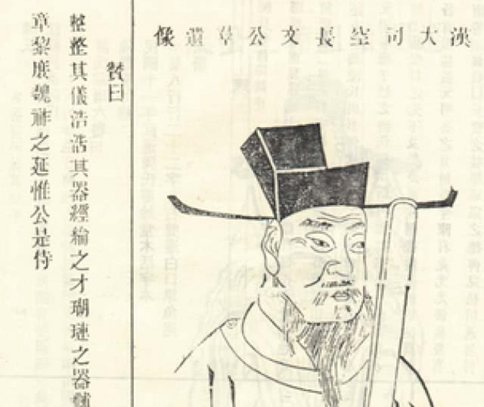 漢大司空長文公羣遺像
贊曰
整整其儀浩浩其器經綸之才瑚璉之器
章黎庶魏祚之延惟公是恃